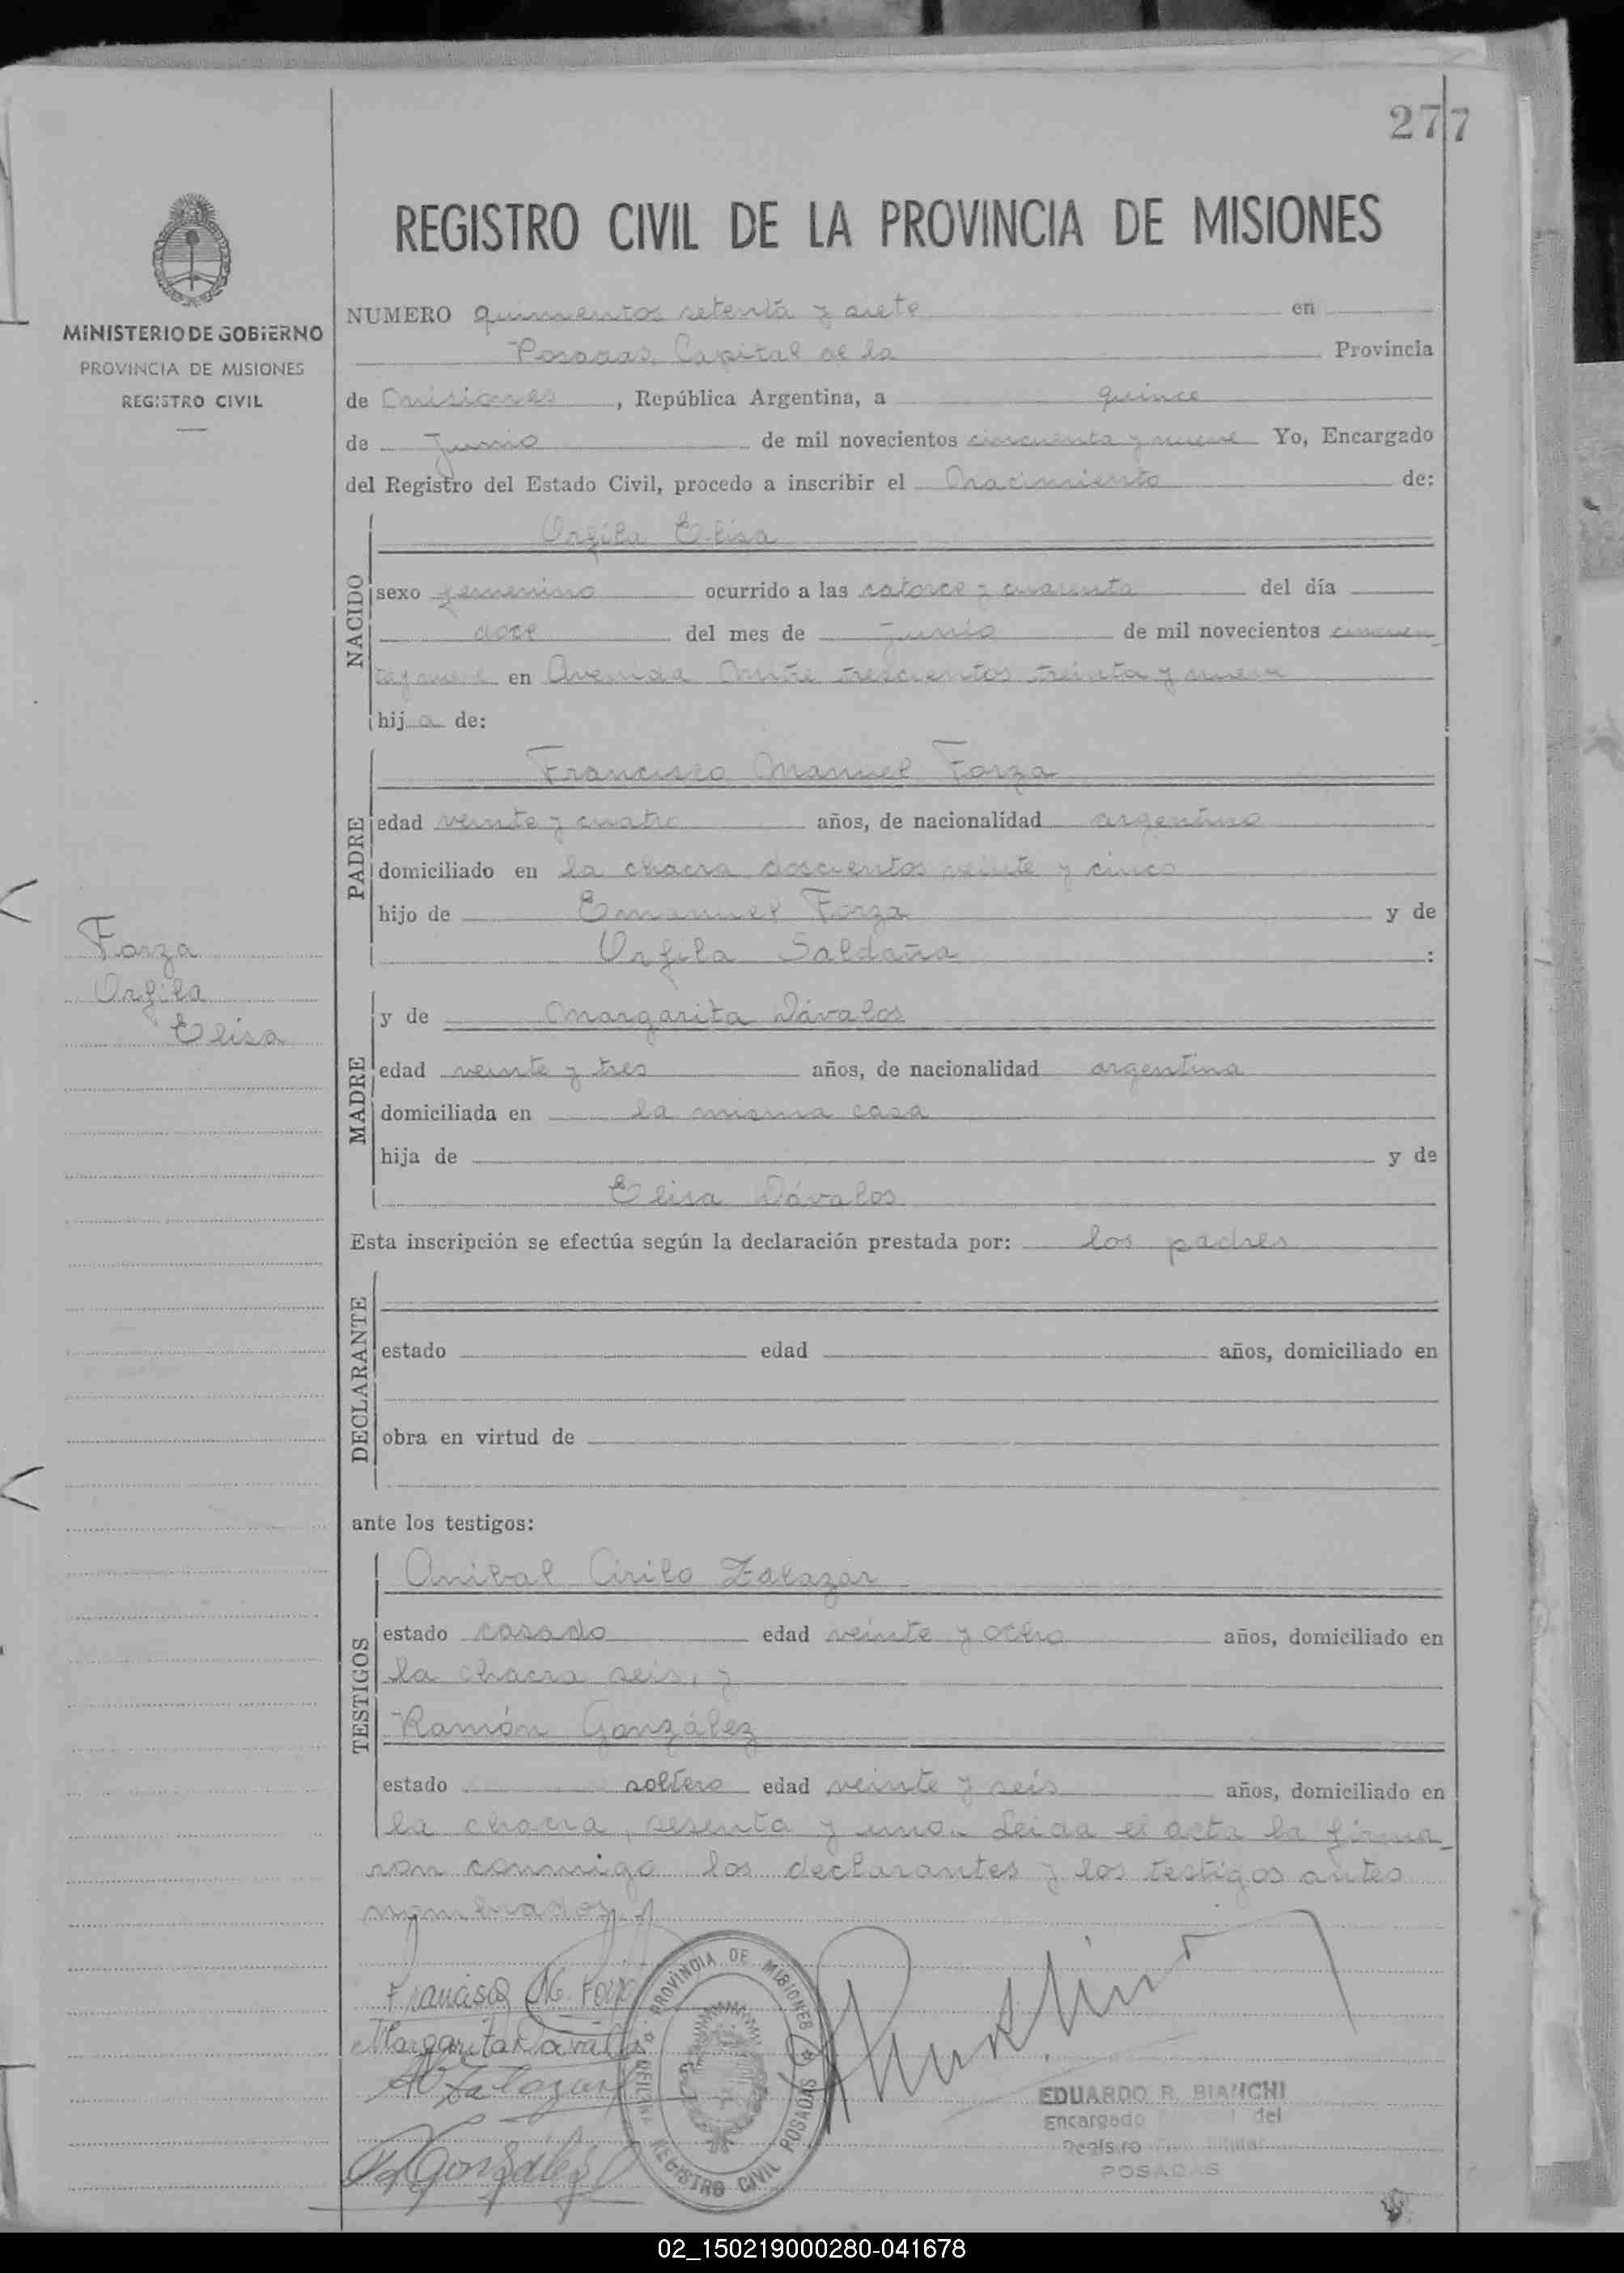 277
REGISTRO CIVIL DE LA PROVINCIA DE MISIONES
MINISTERIO DE GOBIERNO
PROVINCIA DE MISIONES
REGISTRO CIVIL
NUMERO quinientos setenta y siete en
Posadas, Capital de la Provincia
de Misiones, República Argentina, a quince
de Junio de mil novecientos cincuenta y nueve Yo, Encargado
del Registro del Estado Civil, procedo a inscribir el Nacimiento de:
NACIDO
Orfila Elisa
sexo femenino ocurrido a las catorce y cuarenta del día
doce del mes de Junio de mil novecientos cincuen
ta y nueve en Avenida Mitre trescientos treinta y nueve
hija de:
PADRE
Francisco Manuel Forza
edad veinte y cuatro años, de nacionalidad argentino
domiciliado en la chacra doscientos veinte y cinco
hijo de Emanuel Forza y de
Orfila Saldaña :
Forza
Orfila
Elisa
MADRE
y de Margarita Dávalos
edad veinte y tres años, de nacionalidad argentina
domiciliada en la misma casa
hija de y de
Elisa Dávalos
Esta inscripción se efectúa según la declaración prestada por: los padres
DECLARANTE
estado edad años, domiciliado en
obra en virtud de
ante los testigos:
TESTIGOS
Anibal Cirilo Zalazar
estado casado edad veinte y ocho años, domiciliado en
la chacra seis, y
Ramón González
estado soltero edad veinte y seis años, domiciliado en
la chacra, sesenta y uno. Leida el acta la firma
ron conmigo los declarantes y los testigos antes
nombrados.
Francisco M. Forza
Margarita Davalos
Zalazar
R Gonzáles
PROVINCIA DE MISIONES
OFICINA REGISTRO CIVIL POSADAS
EDUARDO R. BIANCHI
Encargado del
Registro
POSADAS
02_150219000280-041678